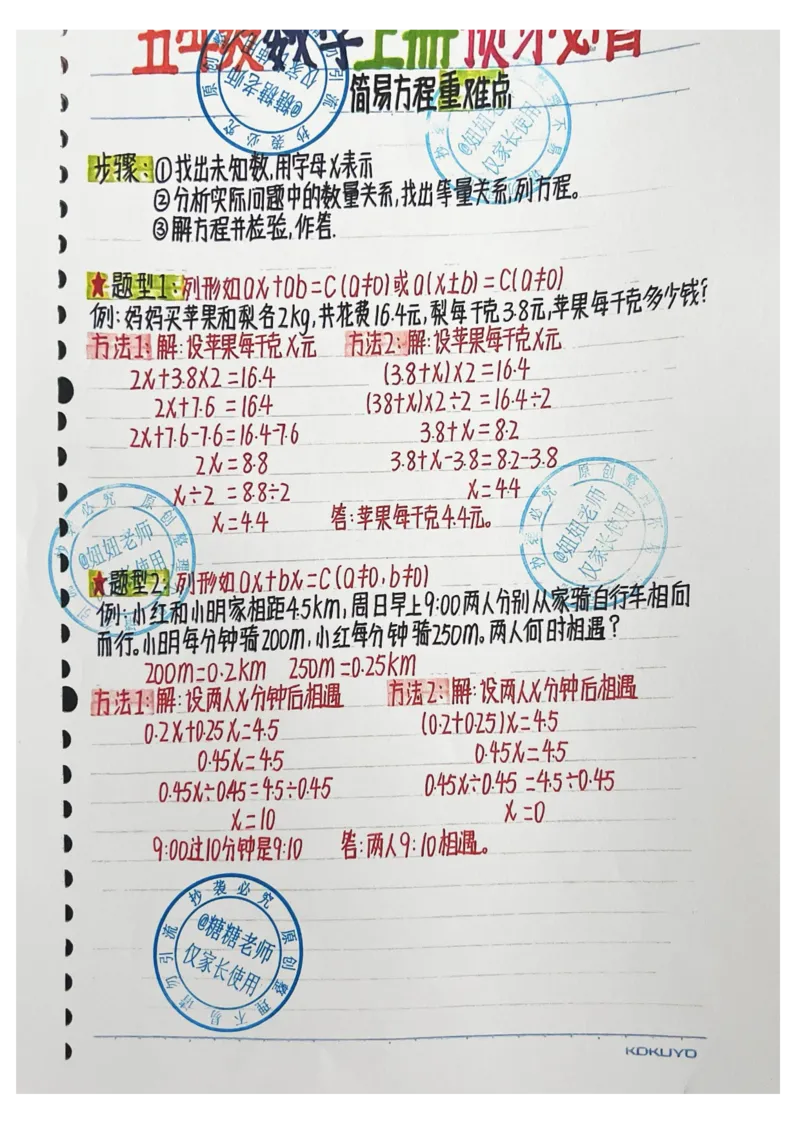 五年级数学上册预习必背
简易方程重难点
步骤:①找出未知数,用字母x表示
②分析实际问题中的数量关系,找出等量关系,列方程。
③解方程并检验,作答.
★题型1:列形如ax+ab=C(a≠0)或a(x±b)=C(a≠0)
例:妈妈买苹果和梨各2kg,共花费16.4元,梨每千克3.8元,苹果每千克多少钱?
方法1:解:设苹果每千克x元 方法2:解:设苹果每千克x元
2x+3.8×2=16.4 (3.8+x)×2=16.4
2x+7.6=16.4 (3.8+x)×2÷2=16.4÷2
2x+7.6-7.6=16.4-7.6 3.8+x=8.2
2x=8.8 3.8+x-3.8=8.2-3.8
x÷2=8.8÷2 x=4.4
x=4.4 答:苹果每千克4.4元。
★题型2:列形如ax+bx=C(a≠0,b≠0)
例:小红和小明家相距4.5km,周日早上9:00两人分别从家骑自行车相向
而行。小明每分钟骑200m,小红每分钟骑250m。两人何时相遇?
200m=0.2km 250m=0.25km
方法1:解:设两人x分钟后相遇 方法2:解:设两人x分钟后相遇
0.2x+0.25x=4.5 (0.2+0.25)x=4.5
0.45x=4.5 0.45x=4.5
0.45x÷0.45=4.5÷0.45 0.45x÷0.45=4.5÷0.45
x=10 x=0
9:00过10分钟是9:10 答:两人9:10相遇。
抄袭必究 原创整理不易请勿引流
@糖糖老师
仅家长使用
KOKUYO